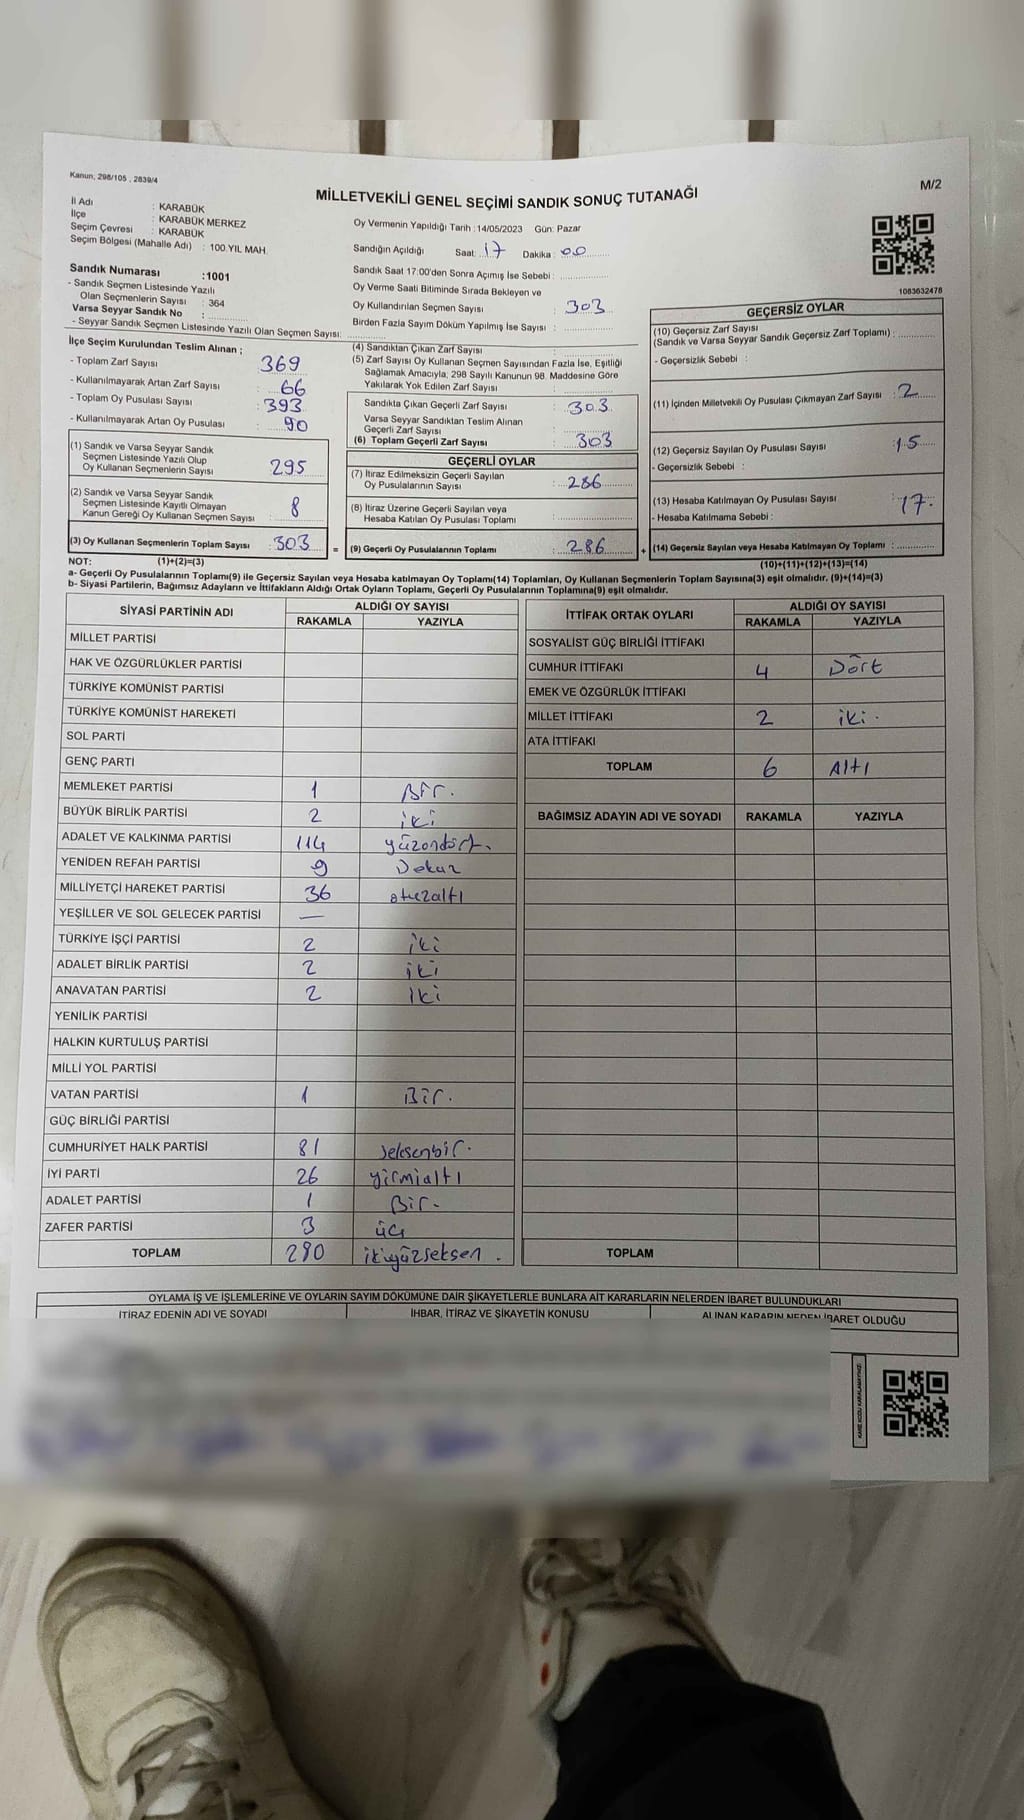 Kanun, 298/105 , 2839/4
M/2
MİLLETVEKİLİ GENEL SEÇİMİ SANDIK SONUÇ TUTANAĞI
İl Adı : KARABÜK
İlçe : KARABÜK MERKEZ
Seçim Çevresi : KARABÜK
Seçim Bölgesi (Mahalle Adı) : 100.YIL MAH.
Sandık Numarası :1001
- Sandık Seçmen Listesinde Yazılı
Olan Seçmenlerin Sayısı : 364
Varsa Seyyar Sandık No :
- Seyyar Sandık Seçmen Listesinde Yazılı Olan Seçmen Sayısı:
Oy Vermenin Yapıldığı Tarih :14/05/2023 Gün: Pazar
Sandığın Açıldığı Saat: 17 Dakika : 00
Sandık Saat 17:00'den Sonra Açımış İse Sebebi :
Oy Verme Saati Bitiminde Sırada Bekleyen ve
Oy Kullandırılan Seçmen Sayısı : 303
Birden Fazla Sayım Döküm Yapılmış İse Sayısı :
1083632478
İlçe Seçim Kurulundan Teslim Alınan ;
- Toplam Zarf Sayısı : 369
- Kullanılmayarak Artan Zarf Sayısı : 66
- Toplam Oy Pusulası Sayısı : 393
- Kullanılmayarak Artan Oy Pusulası : 90
(1) Sandık ve Varsa Seyyar Sandık
Seçmen Listesinde Yazılı Olup
Oy Kullanan Seçmenlerin Sayısı : 295
(2) Sandık ve Varsa Seyyar Sandık
Seçmen Listesinde Kayıtlı Olmayan
Kanun Gereği Oy Kullanan Seçmen Sayısı : 8
(3) Oy Kullanan Seçmenlerin Toplam Sayısı : 303
(4) Sandıktan Çıkan Zarf Sayısı :
(5) Zarf Sayısı Oy Kullanan Seçmen Sayısından Fazla İse, Eşitliği
Sağlamak Amacıyla; 298 Sayılı Kanunun 98. Maddesine Göre
Yakılarak Yok Edilen Zarf Sayısı :
Sandıkta Çıkan Geçerli Zarf Sayısı : 303
Varsa Seyyar Sandıktan Teslim Alınan
Geçerli Zarf Sayısı :
(6) Toplam Geçerli Zarf Sayısı : 303
GEÇERLİ OYLAR
(7) İtiraz Edilmeksizin Geçerli Sayılan
Oy Pusulalarının Sayısı : 286
(8) İtiraz Üzerine Geçerli Sayılan veya
Hesaba Katılan Oy Pusulası Toplamı :
= (9) Geçerli Oy Pusulalarının Toplamı : 286 +
GEÇERSİZ OYLAR
(10) Geçersiz Zarf Sayısı
(Sandık ve Varsa Seyyar Sandık Geçersiz Zarf Toplamı) :
- Geçersizlik Sebebi :
(11) İçinden Milletvekili Oy Pusulası Çıkmayan Zarf Sayısı : 2
(12) Geçersiz Sayılan Oy Pusulası Sayısı : 15
- Geçersizlik Sebebi :
(13) Hesaba Katılmayan Oy Pusulası Sayısı : 17.
- Hesaba Katılmama Sebebi :
(14) Geçersiz Sayılan veya Hesaba Katılmayan Oy Toplamı :
NOT: (1)+(2)=(3)
(10)+(11)+(12)+(13)=(14)
a- Geçerli Oy Pusulalarının Toplamı(9) ile Geçersiz Sayılan veya Hesaba katılmayan Oy Toplamı(14) Toplamları, Oy Kullanan Seçmenlerin Toplam Sayısına(3) eşit olmalıdır. (9)+(14)=(3)
b- Siyasi Partilerin, Bağımsız Adayların ve İttifakların Aldığı Ortak Oyların Toplamı, Geçerli Oy Pusulalarının Toplamına(9) eşit olmalıdır.
SİYASİ PARTİNİN ADI
ALDIĞI OY SAYISI
RAKAMLA YAZIYLA
MİLLET PARTİSİ
HAK VE ÖZGÜRLÜKLER PARTİSİ
TÜRKİYE KOMÜNİST PARTİSİ
TÜRKİYE KOMÜNİST HAREKETİ
SOL PARTİ
GENÇ PARTİ
MEMLEKET PARTİSİ 1 Bir.
BÜYÜK BİRLİK PARTİSİ 2 iki
ADALET VE KALKINMA PARTİSİ 114 yüzondört.
YENİDEN REFAH PARTİSİ 9 Dokuz
MİLLİYETÇİ HAREKET PARTİSİ 36 otuzaltı
YEŞİLLER VE SOL GELECEK PARTİSİ —
TÜRKİYE İŞÇİ PARTİSİ 2 iki
ADALET BİRLİK PARTİSİ 2 iki
ANAVATAN PARTİSİ 2 iki
YENİLİK PARTİSİ
HALKIN KURTULUŞ PARTİSİ
MİLLİ YOL PARTİSİ
VATAN PARTİSİ 1 Bir.
GÜÇ BİRLİĞİ PARTİSİ
CUMHURİYET HALK PARTİSİ 81 seksenbir.
İYİ PARTİ 26 yirmialtı
ADALET PARTİSİ 1 Bir.
ZAFER PARTİSİ 3 üç
TOPLAM 280 ikiyüzseksen.
İTTİFAK ORTAK OYLARI
ALDIĞI OY SAYISI
RAKAMLA YAZIYLA
SOSYALİST GÜÇ BİRLİĞİ İTTİFAKI
CUMHUR İTTİFAKI 4 Dört
EMEK VE ÖZGÜRLÜK İTTİFAKI
MİLLET İTTİFAKI 2 iki.
ATA İTTİFAKI
TOPLAM 6 Altı
BAĞIMSIZ ADAYIN ADI VE SOYADI RAKAMLA YAZIYLA
TOPLAM
OYLAMA İŞ VE İŞLEMLERİNE VE OYLARIN SAYIM DÖKÜMÜNE DAİR ŞİKAYETLERLE BUNLARA AİT KARARLARIN NELERDEN İBARET BULUNDUKLARI
İTİRAZ EDENİN ADI VE SOYADI
İHBAR, İTİRAZ VE ŞİKAYETİN KONUSU
ALINAN KARARIN NEDEN İBARET OLDUĞU